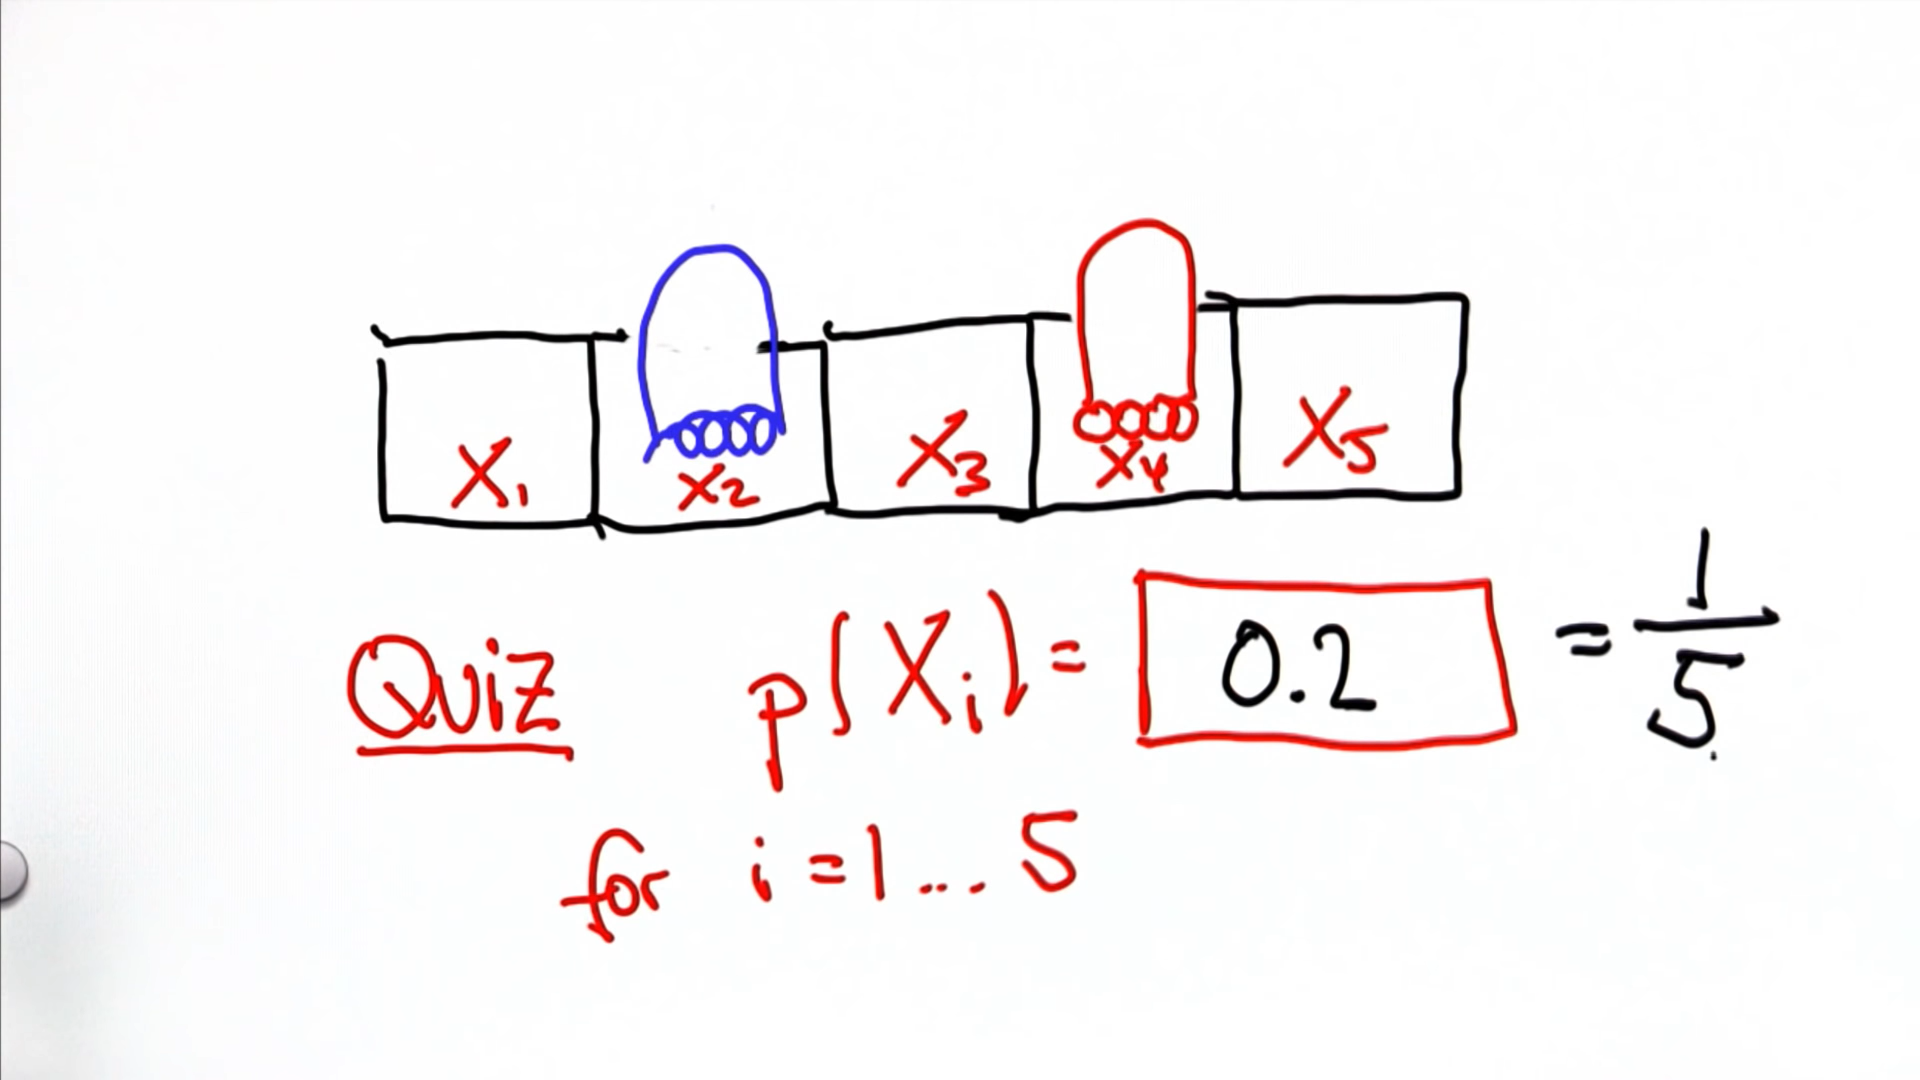 X₁ X₂ X₃ X₄ X₅
Quiz p(Xᵢ) = 0.2 = 1/5
for i = 1 ... 5